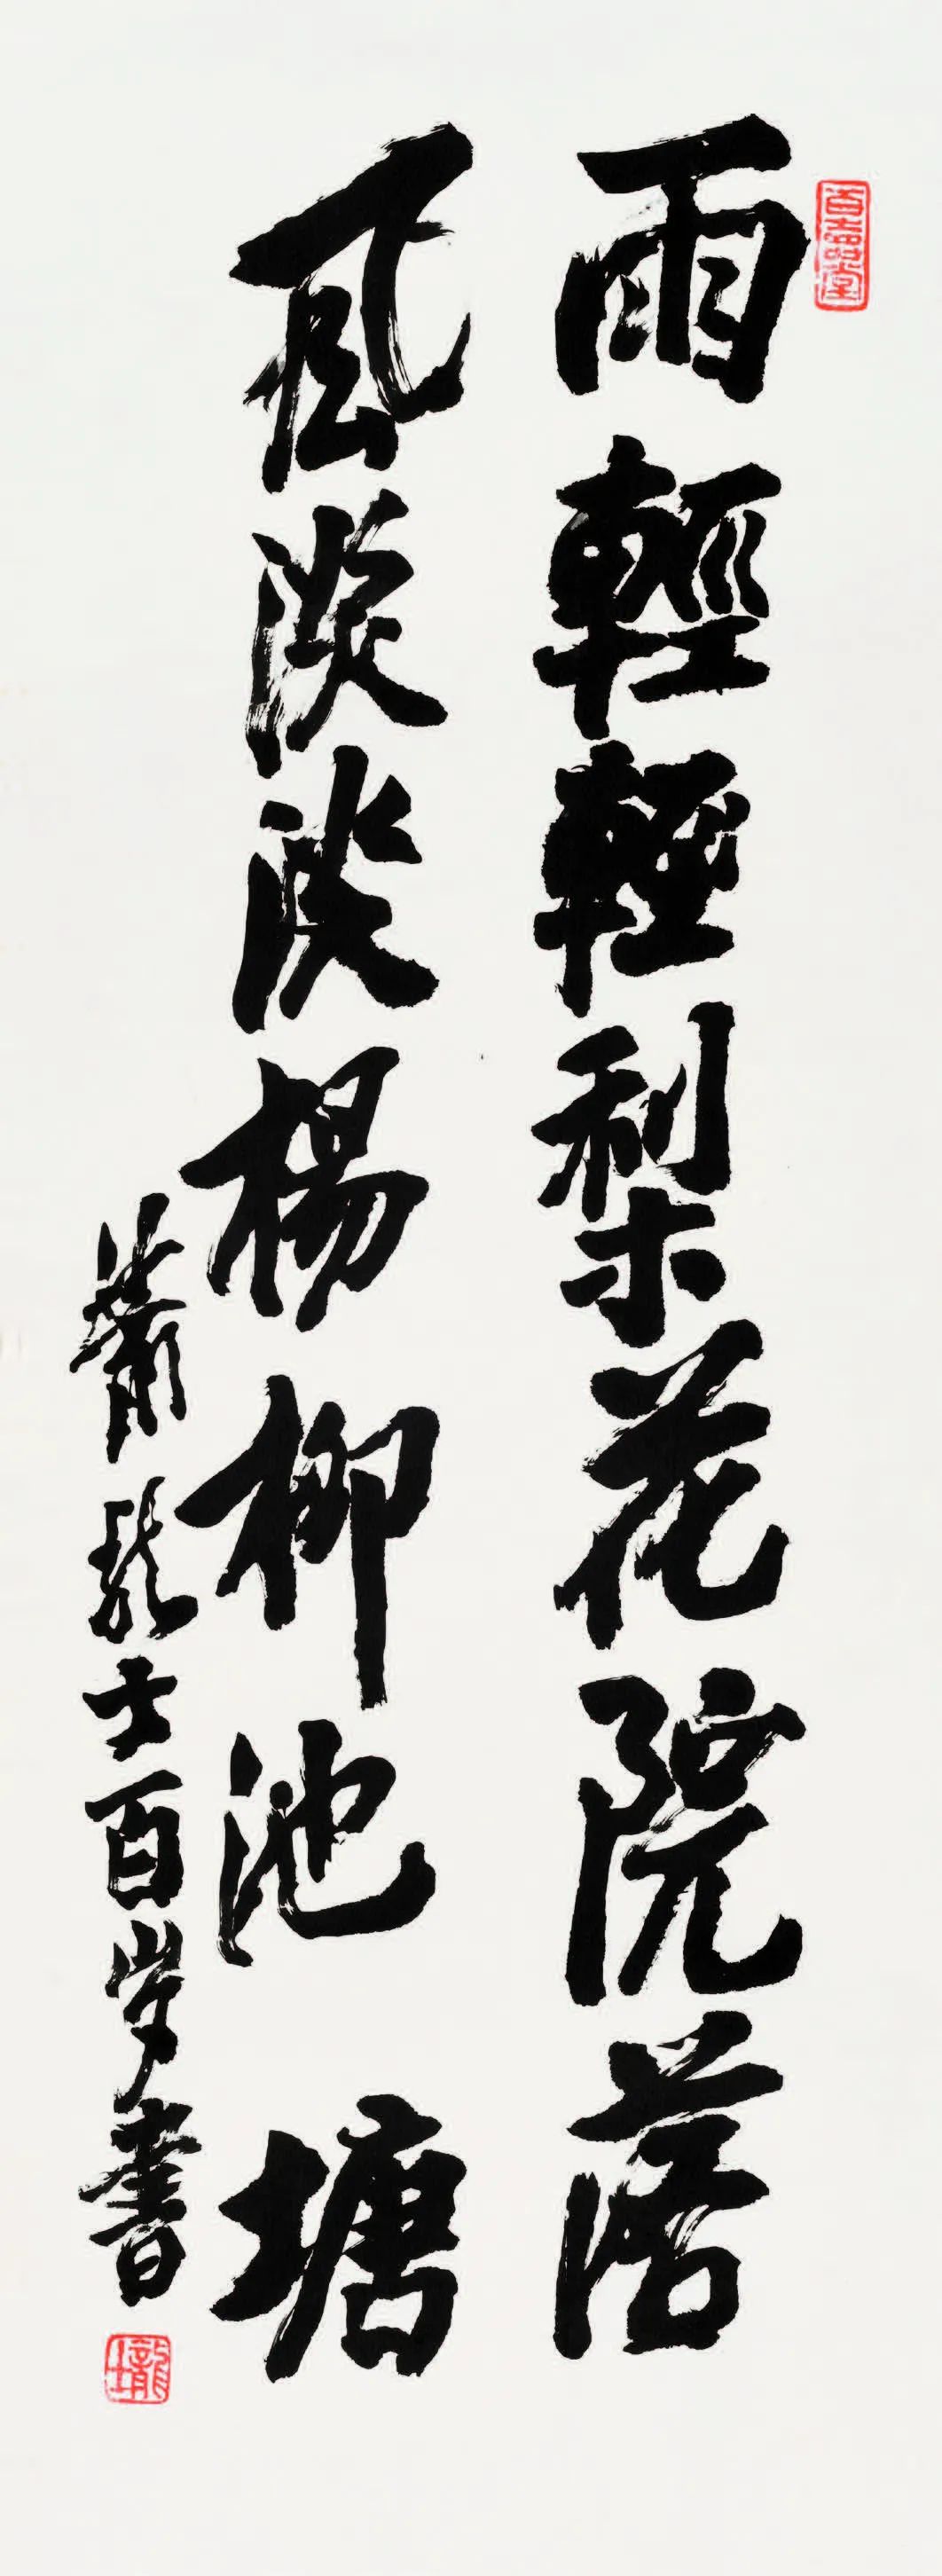 雨輕輕梨花院落
風淡淡楊柳池塘
蕭龍士百岁書
龍士